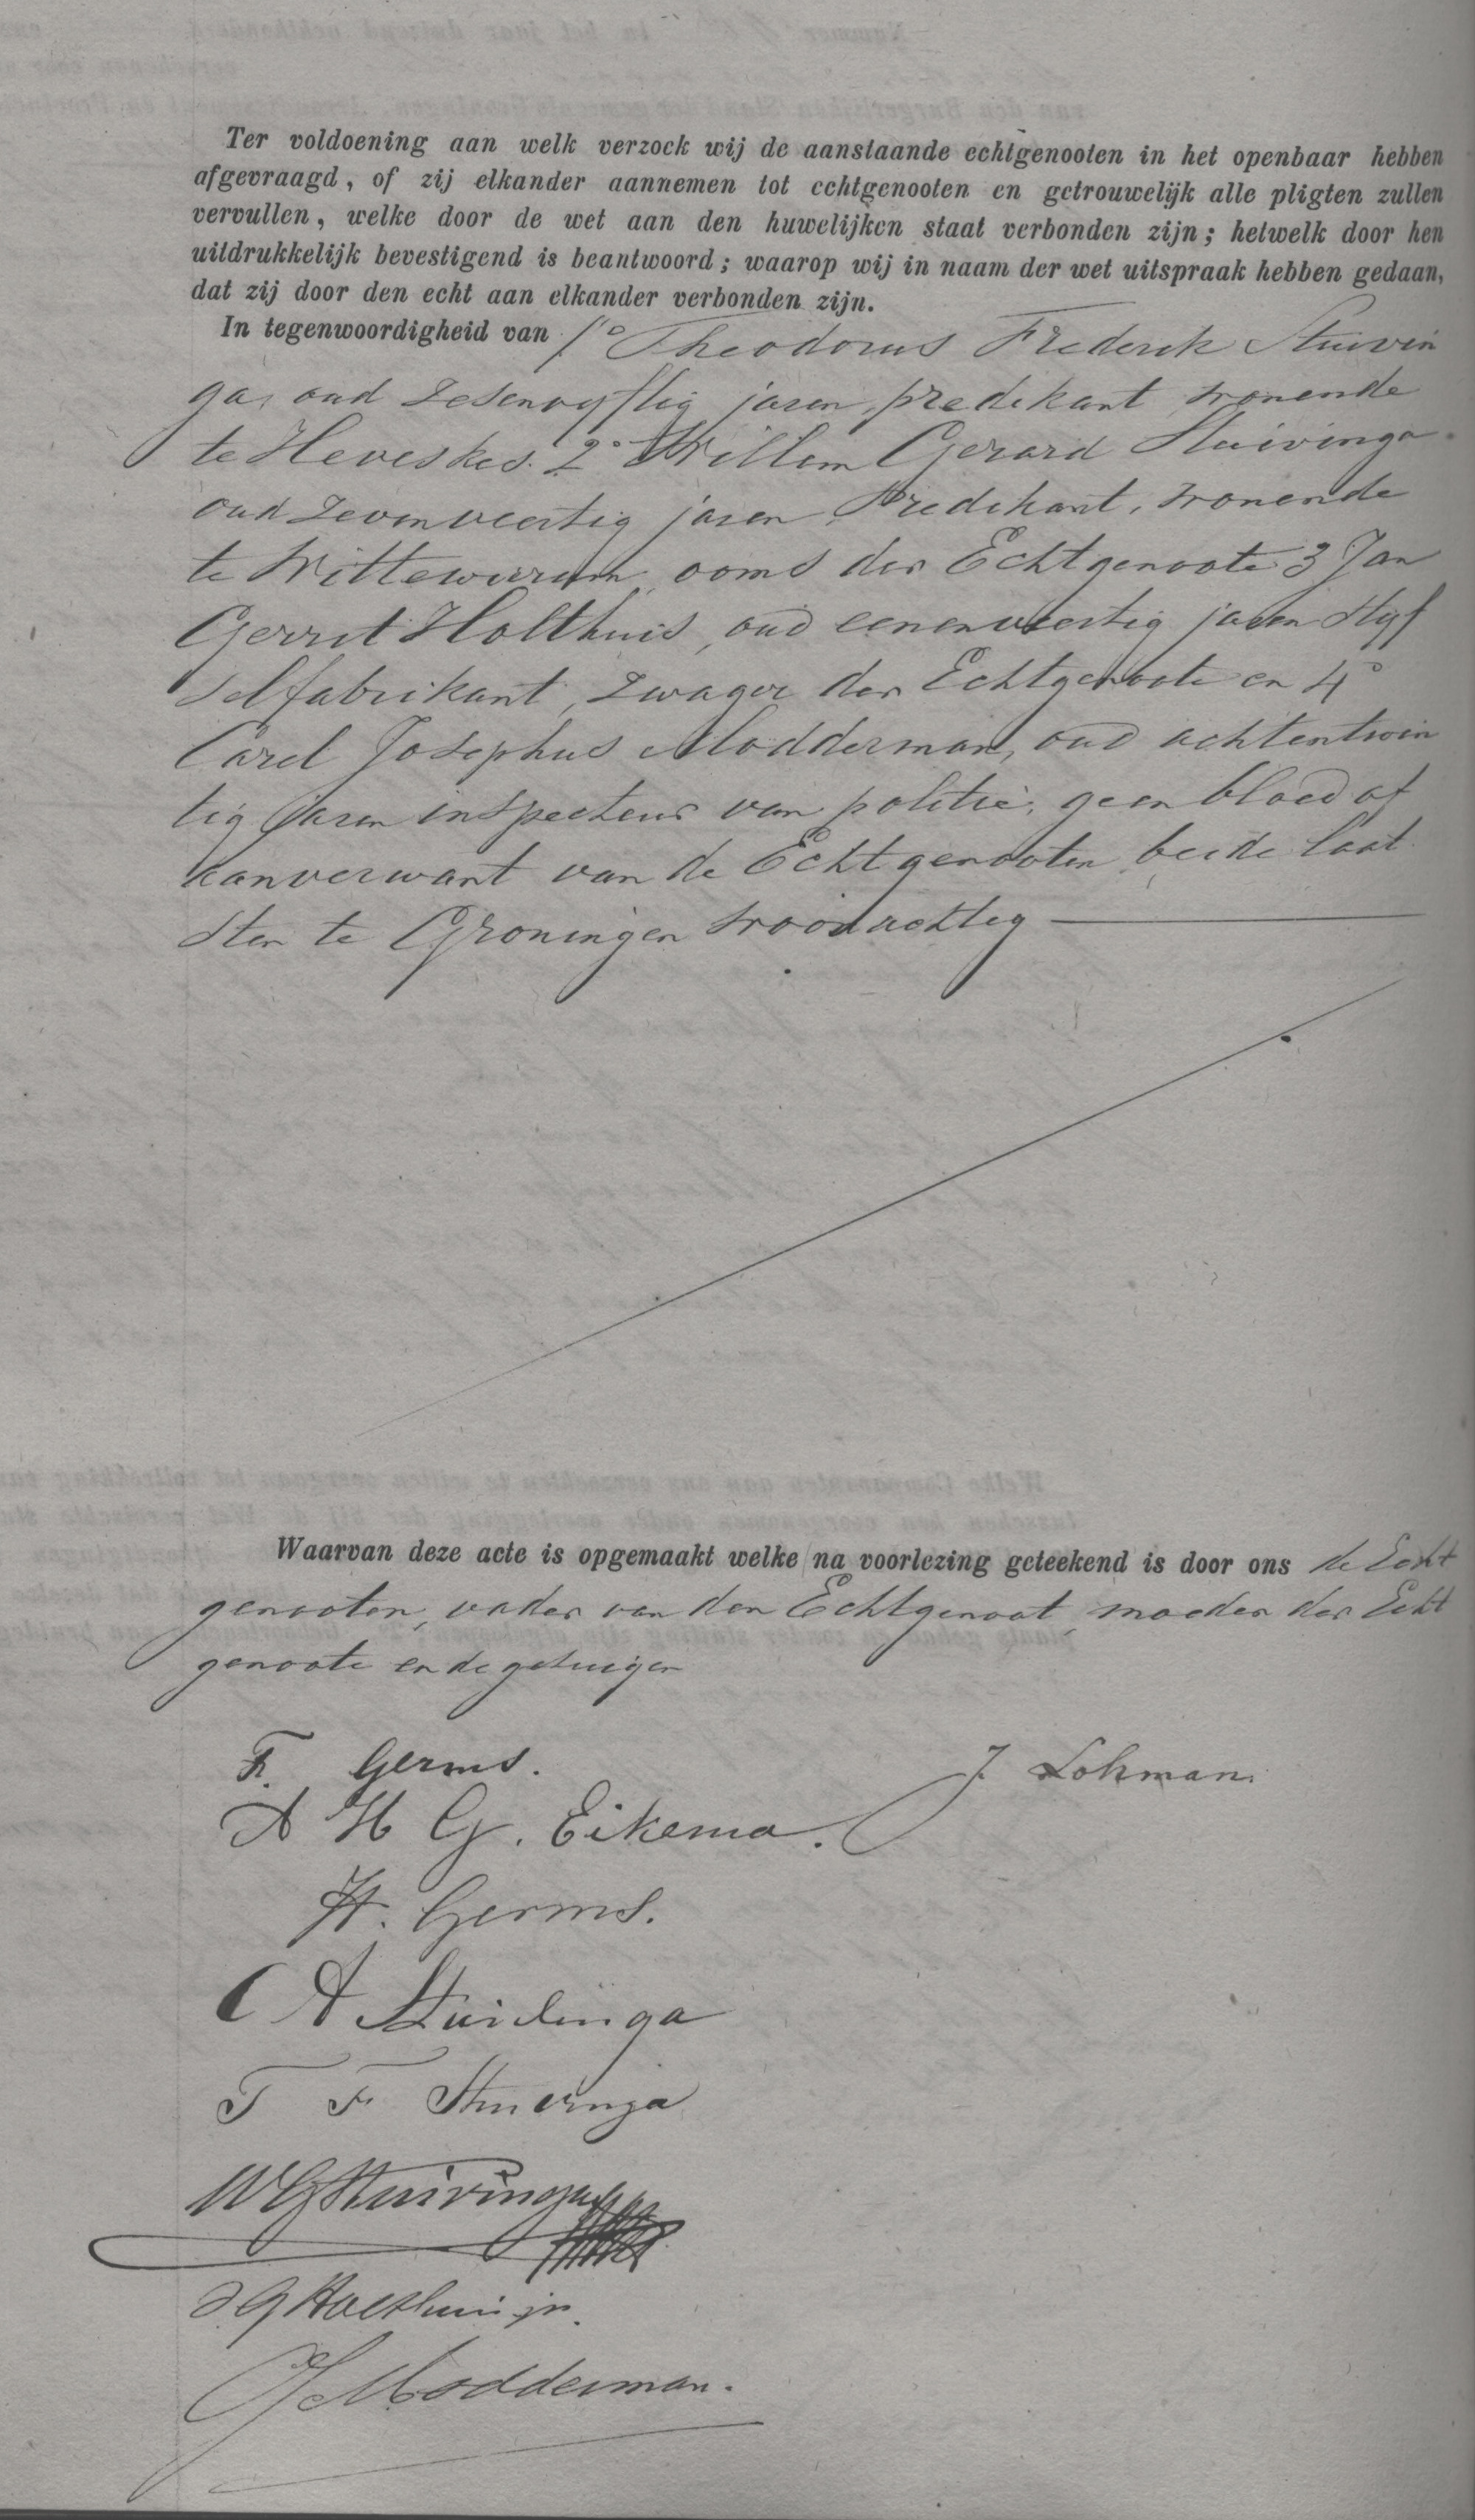 Ter voldoening aan welk verzoek wij de aanstaande echtgenooten in het openbaar hebben
afgevraagd, of zij elkander aannemen tot echtgenooten en getrouwelijk alle pligten zullen
vervullen, welke door de wet aan den huwelijken staat verbonden zijn; hetwelk door hen
uitdrukkelijk bevestigend is beantwoord; waarop wij in naam der wet uitspraak hebben gedaan,
dat zij door den echt aan elkander verbonden zijn.
In tegenwoordigheid van 1o Theodorus Frederik Stuivin
ga, oud zesenvyftig jaren, predikant wonende
te Heveskes. 2o Willem Gerard Stuivinga
oud zevenveertig jaren Predikant, wonende
te Wittewierum, ooms der Echtgenoote 3 Jan
Gerrit Holthuis, oud eenenveertig jaren Styf
selfabrikant, zwager der Echtgenoote en 4o
Carel Josephus Modderman, oud achtentwin
tig jaren inspecteur van politie, geen bloed of
aanverwant van de Echtgenooten beide laat
sten te Groningen woonachtig
Waarvan deze acte is opgemaakt welke na voorlezing geteekend is door ons de Echt
genooten, vader van den Echtgenoot, moeder der Echt
genoote en de getuigen
F. Germs. J. Lohman.
A H G. Eikema.
H. Germs.
C A Stuivinga
T F Stuivinga
W G Stuivinga
J G Holthuis jr.
C J Modderman.